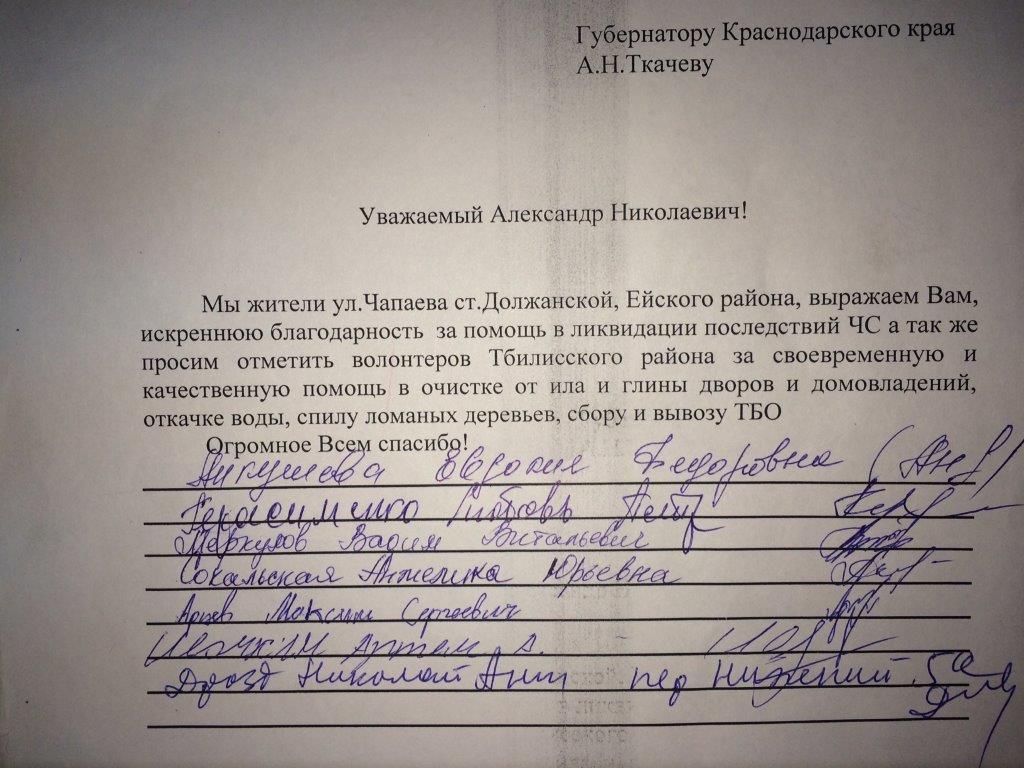 Губернатору Краснодарского края
А.Н.Ткачеву
Уважаемый Александр Николаевич!
Мы жители ул.Чапаева ст.Должанской, Ейского района, выражаем Вам,
искреннюю благодарность за помощь в ликвидации последствий ЧС а так же
просим отметить волонтеров Тбилисского района за своевременную и
качественную помощь в очистке от ила и глины дворов и домовладений,
откачке воды, спилу ломаных деревьев, сбору и вывозу ТБО
Огромное Всем спасибо!
Евдокия Федоровна
Герасименко Любовь
Меркулов Вадим Витальевич
Сокальская Анжелика Юрьевна
Максим Сергеевич
Артем
Дрозд Николай пер 5а